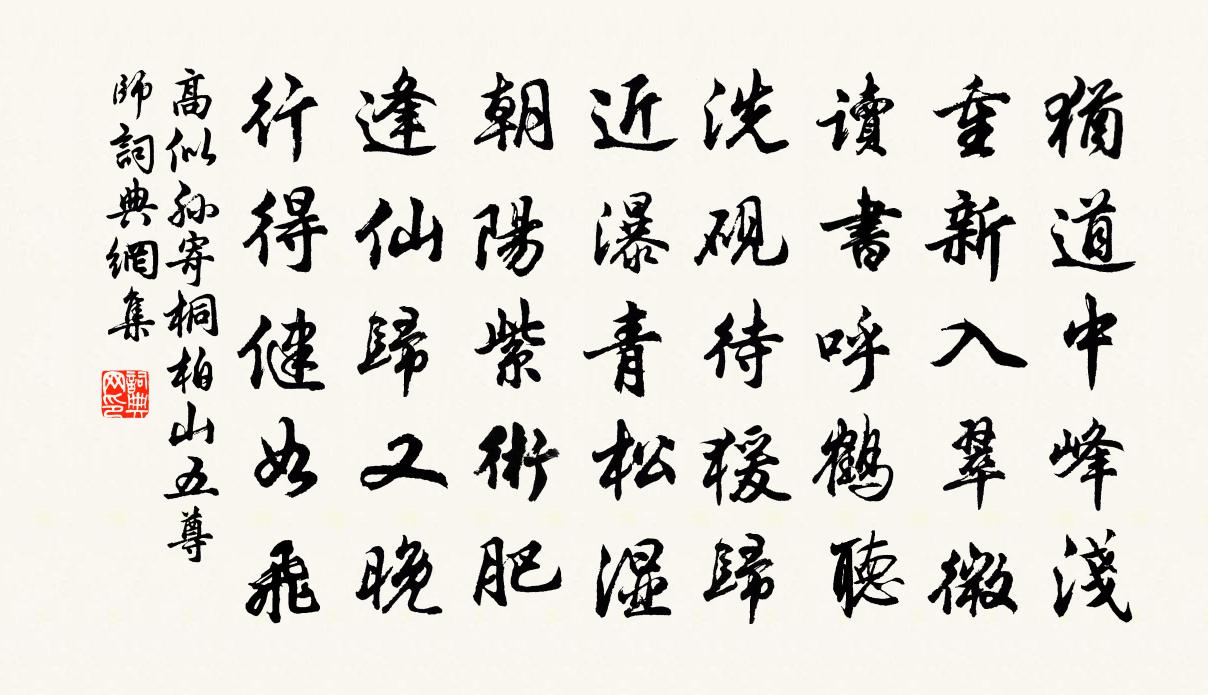 猶道中峰淺
重新入翠微
讀書呼鶴聽
洗硯待猨歸
近瀑青松濕
朝陽紫術肥
逢仙歸又晚
行得健如飛
高似孫寄桐柏山五尊
師詞典網集
詞典
网印